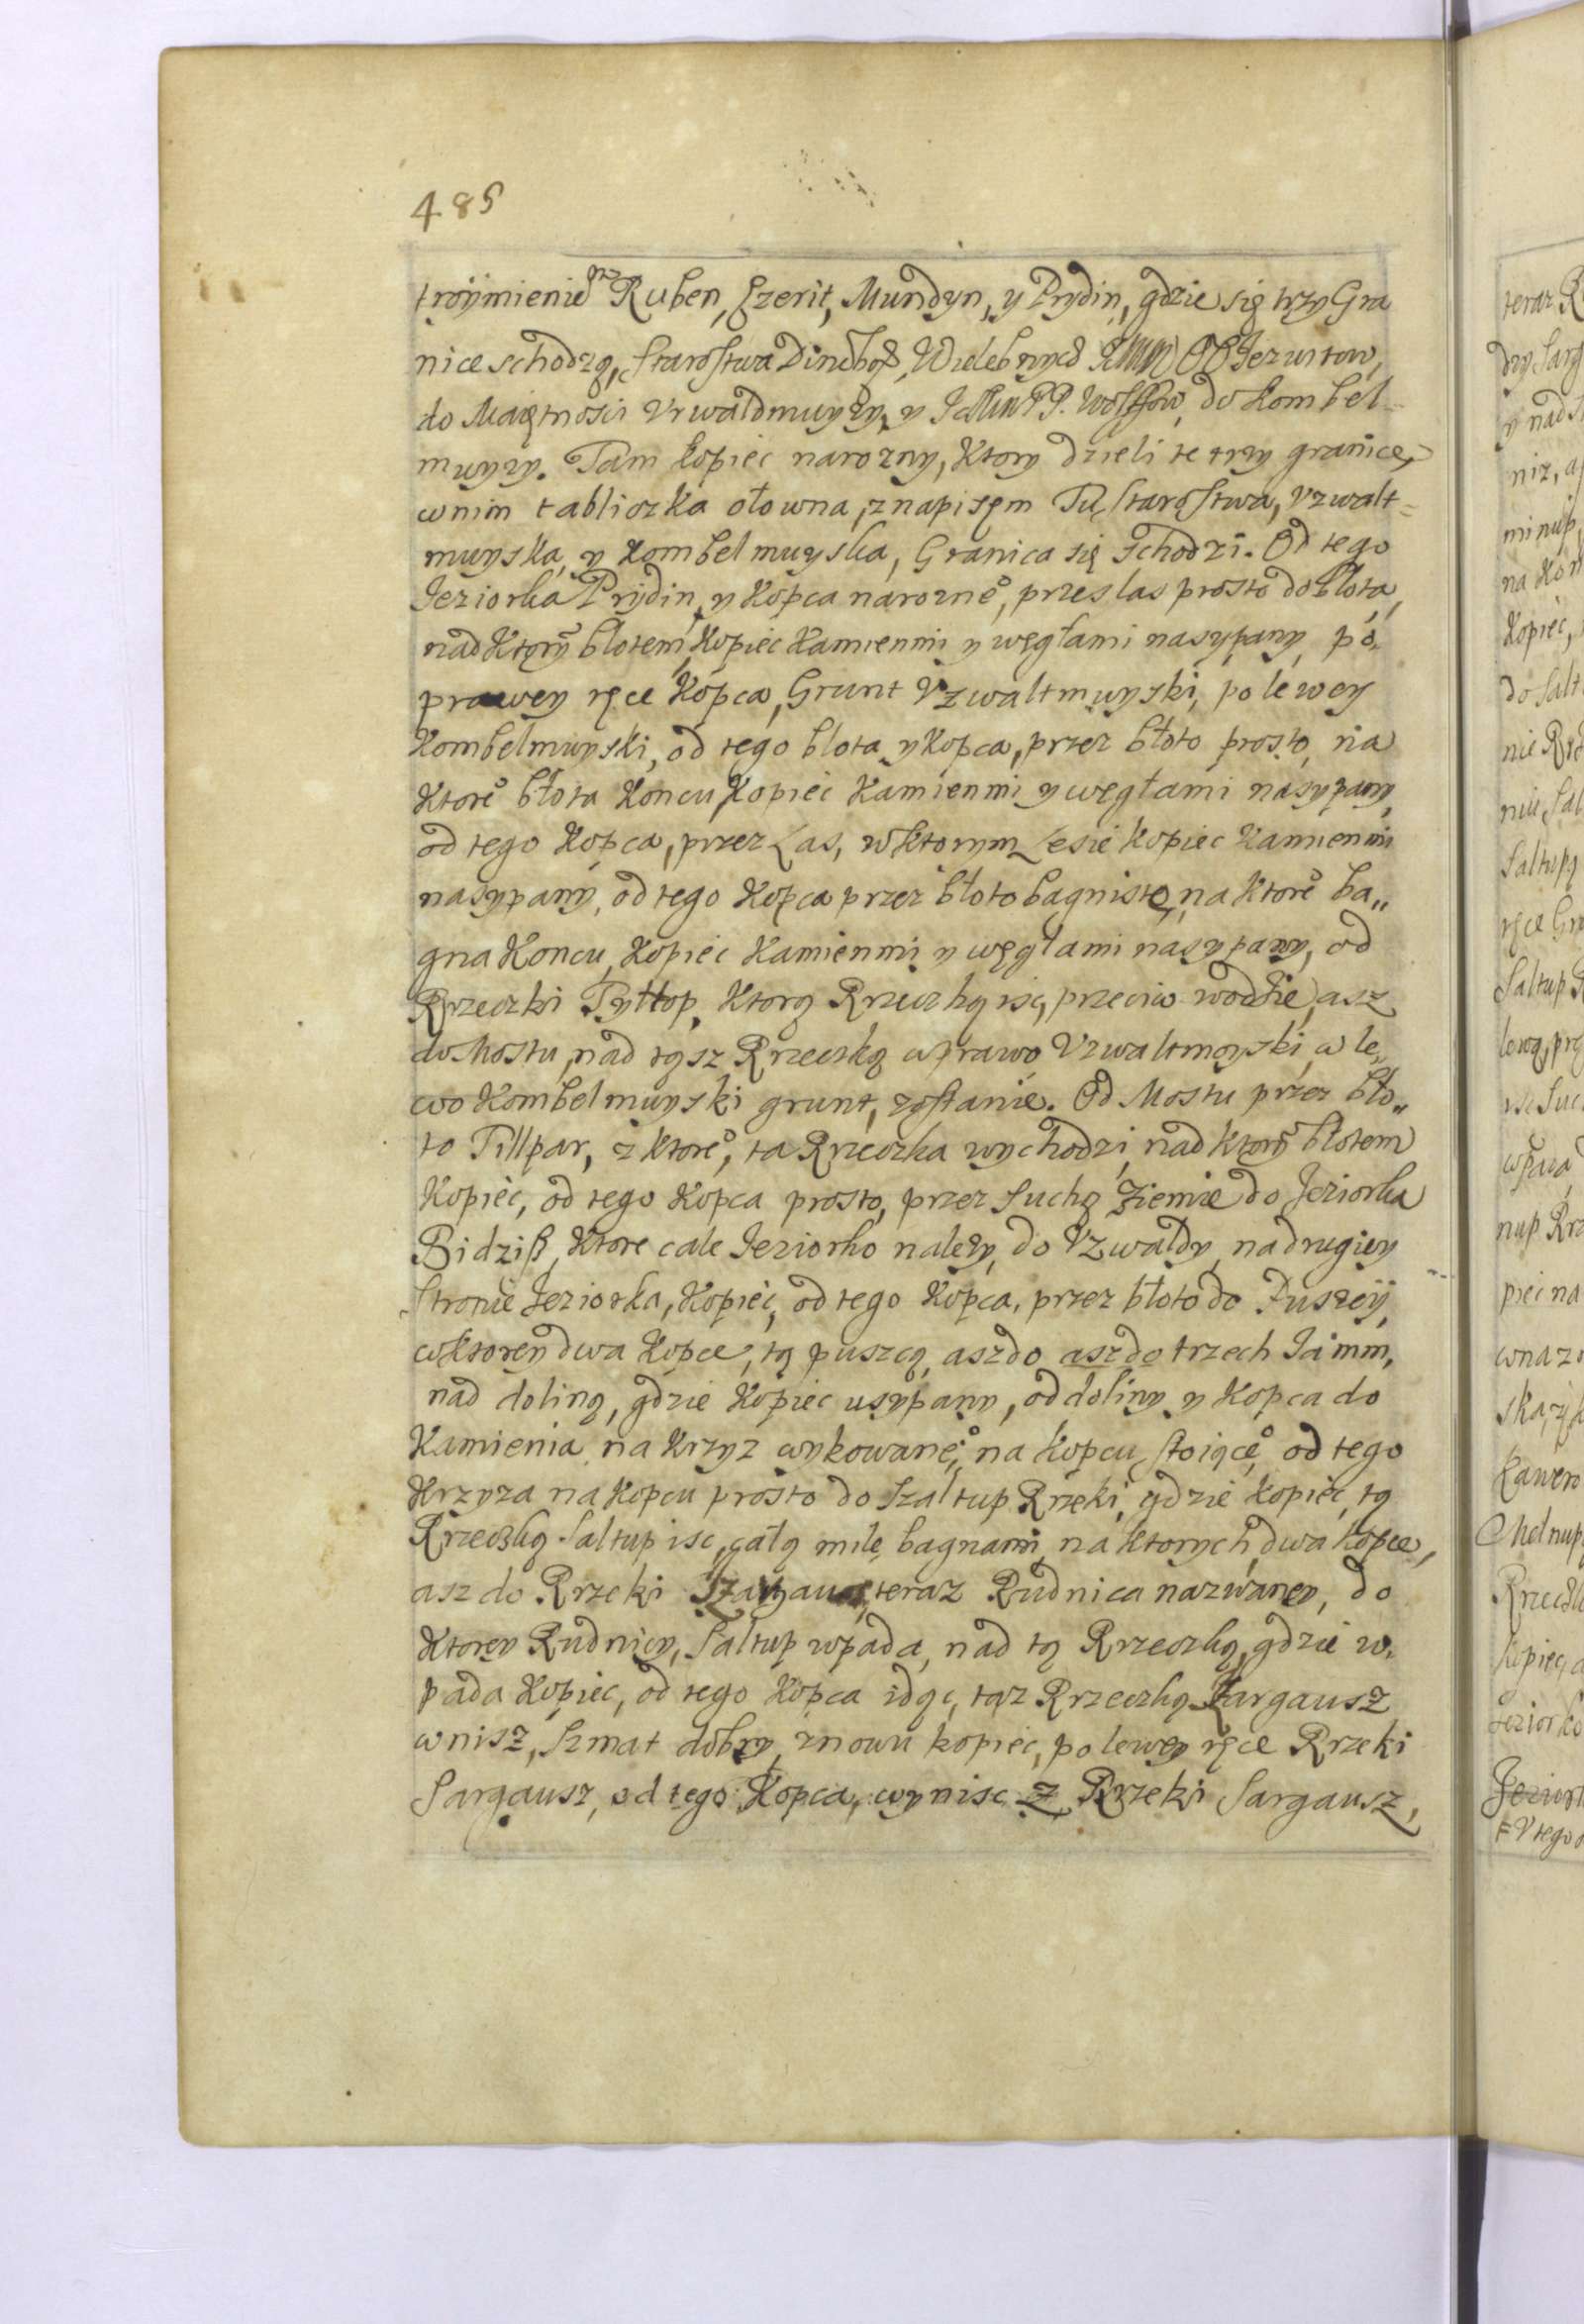 485
troymienie Ruben, Ezerit, Mundyn, y Prydin, gdzie się trzy Gra
nice schodzą, Starostwa Dineb: Wielebnych OO Jezuitow,
do Maiętnosci Vzwaldmuyży, y PP. Wolffow, do Kombel=
muyzy. Tam kopiec narozny, Ktory dzieli te trzy granice,
wnim tabliczka ołowna, znapisem Tu Starostwa, Vzwalt=
muyska, y Kombelmuyska, Granica się schodzi. Od tego
Jeziorka Prydin, y Kopca narozne°, przes las prosto do błota,
nad Ktorȳ błotem, Kopiec Kamienmi y węgłami nasypany, po
prawey ręce Kopca, Grunt Vzwaltmuyski, po lewey
Kombelmuyski, od tego błota y Kopca, przez błoto prosto, na
Ktore° błota Koncu, Kopiec Kamienmi y węgłami nasypany,
od tego Kopca, przez Las, wktorym Lesie Kopiec Kamienmi
nasypany, od tego Kopca przez błoto bagniste, na Ktore° ba„
gna Koncu, Kopiec Kamienmi y węgłami nasypany, od
Rzeczki Tyltop, Ktorą Rzeczką isc, przeciw wodzie, asz
do Mostu, nad tąsz Rzeczką wprawo Vzwaltmoyski, w le„
wo Kombelmuyski grunt, zostanie. Od Mostu przez bło„
to Tillpar, z Ktore°, ta Rzeczka wychodzi, nad Ktorȳ błotem
Kopiec, od tego Kopca prosto, przez Suchą Ziemie do Jeziorka
Bidziß, Ktore cale Jeziorko należy, do Vzwaldy, na drugiey
Stronie Jeziorka, Kopiec, od tego Kopca, przez błoto do Puszczy,
wktorey dwa Kopce, tą puszczą, aszdo aszdo trzech Jamm,
nad doliną, gdzie Kopiec usypany, od doliny y Kopca do
Kamienia, na Krzyz wykowane°, na Kopcu Stoiące°, od tego
Krzyza na Kopcu prosto do Szaltup Rzeki, gdzie Kopiec, tą
Rzeczką Saltup isc, całą milę bagnami, na Ktorych, dwa Kopce,
asz do Rzeki teraz Rudnica nazwaney, do
Ktorey Rudnicy, Saltup wpada, nad tą Rzeczką, gdzie w„
pada Kopiec, od tego Kopca idąc, tąz Rzeczką Zargausz
wnisz, Szmat dobry, znowu kopiec, po lewey ręce Rzeki
Sargausz, od tego Kopca, wynisc z Rzeki Sargausz,